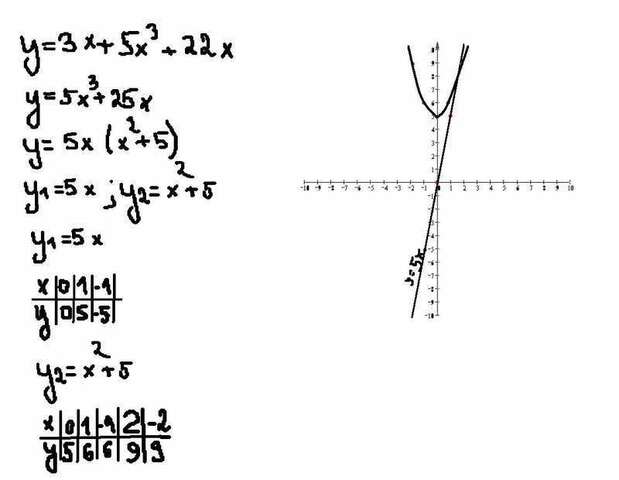 y=3x+5x³+22x
y=5x³+25x
y=5x(x²+5)
y1=5x ; y2=x²+5
y1=5x
x|0|1|-1
y|0|5|-5
y2=x²+5
x|0|1|-1|2|-2
y|5|6|6|9|9
10
9
8
7
6
5
4
3
2
1
-10 -9 -8 -7 -6 -5 -4 -3 -2 -1 0 1 2 3 4 5 6 7 8 9 10
-1
-2
-3
-4
-5
-6
-7
-8
-9
-10
y=5x